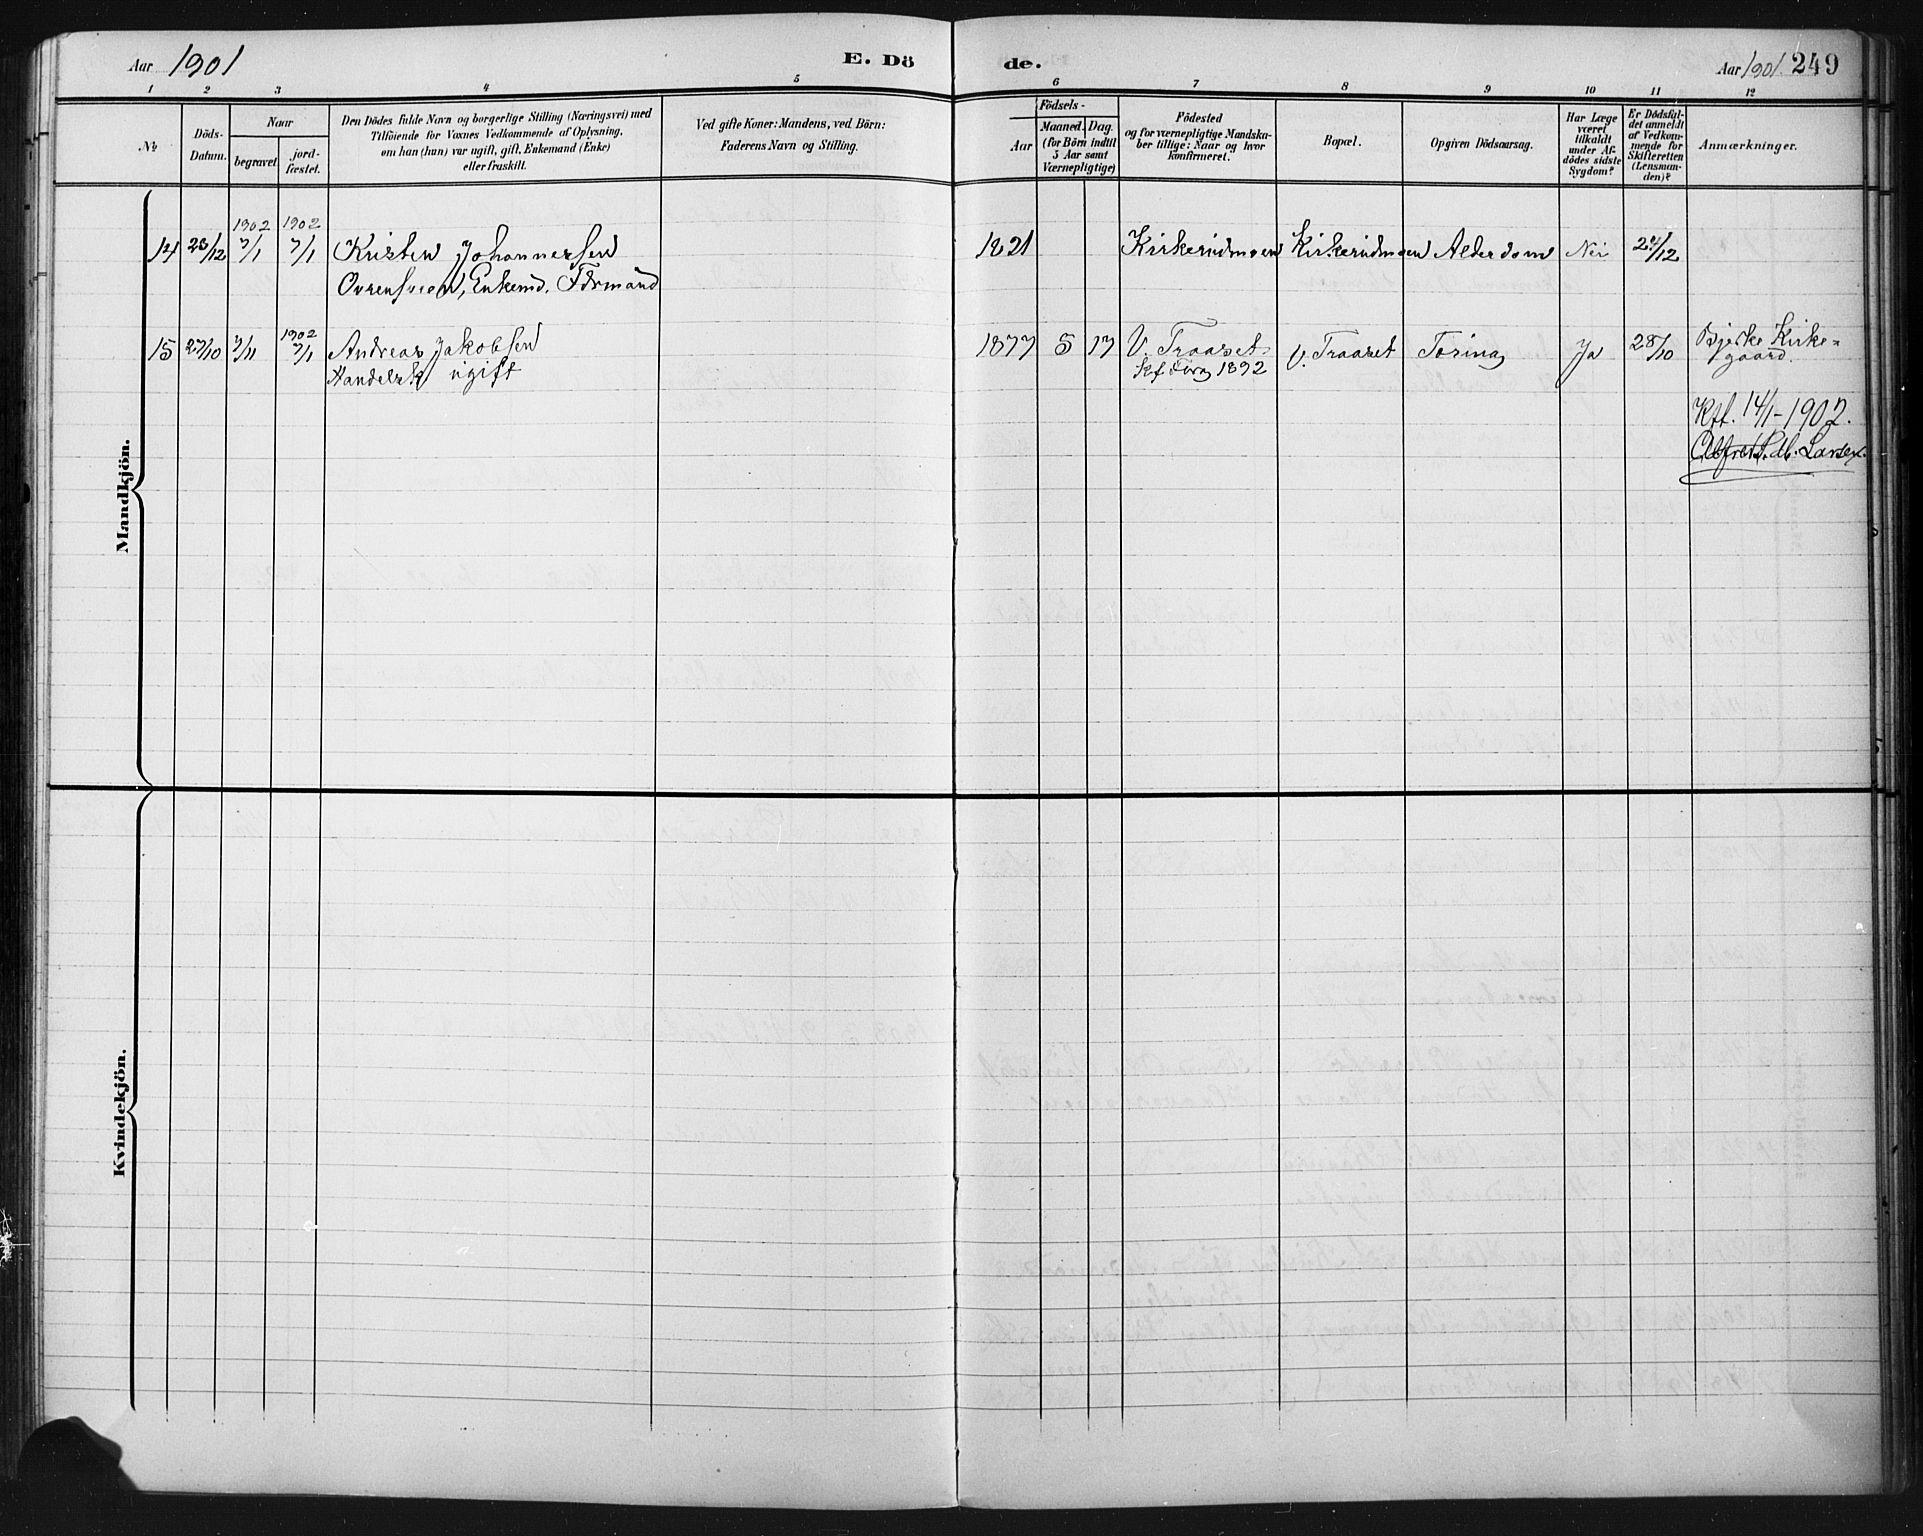 Aar 1901
E. Dö
de.
Aar 1901. 249
1 2 3 4 5 6 7 8 9 10 11 12
№
Döds-
Datum.
Naar
begravet.
jord-
fæstet.
Den Dödes fulde Navn og borgerlige Stilling (Næringsvei) med
Tilföiende for Voxnes Vedkommende af Oplysning,
om han (hun) var ugift, gift, Enkemand (Enke)
eller fraskilt.
Ved gifte Koner: Mandens, ved Börn:
Faderens Navn og Stilling.
Födsels-
Aar
Maaned. Dag.
(for Börn indtil
5 Aar samt
Værnepligtige)
Födested
og for værnepligtige Mandska-
ber tillige: Naar og hvor
konfirmeret.
Bopæl.
Opgiven Dödsaarsag.
Har Læge
været
tilkaldt
under Af-
dödes sidste
Sygdom?
Er Dödsfal-
det anmeldt
af Vedkom-
mende for
Skifteretten
(Lensman-
den)?
Anmærkninger.
Mandkjön.
1902 1902
14 23/12 7/1 7/1 Kristen Johannessen 1821 Kirkerudmoen Kirkerudmoen Alderdom Nei 24/12
Enkemd. Formand
1902
15 27/10 7/11 7/1 Andreas Jakobsen 1877 5 17 V. Traaset V. Traaset Tæring Ja 28/10 Bjerke Kirke=
Handelsb ugift 1892 gaard.
Kff. 14/1-1902.
Larsen.
Kvindekjön.